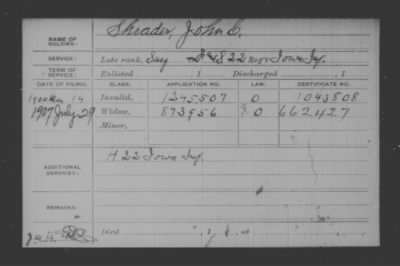 NAME OF SOLDIER: Shrader, John C.
SERVICE: Late rank, Surg 22 Reg't Iowa Inf.
TERM OF SERVICE: Enlisted , 1 Discharged , 1
DATE OF FILING. CLASS. APPLICATION NO. LAW. CERTIFICATE NO.
1900 14 Invalid, 1245507 0 1043808
1907 July 29 Widow, 873956 0 662427
Minor,
ADDITIONAL SERVICES: H 22 Iowa Inf.
REMARKS:
Died , 1 , at